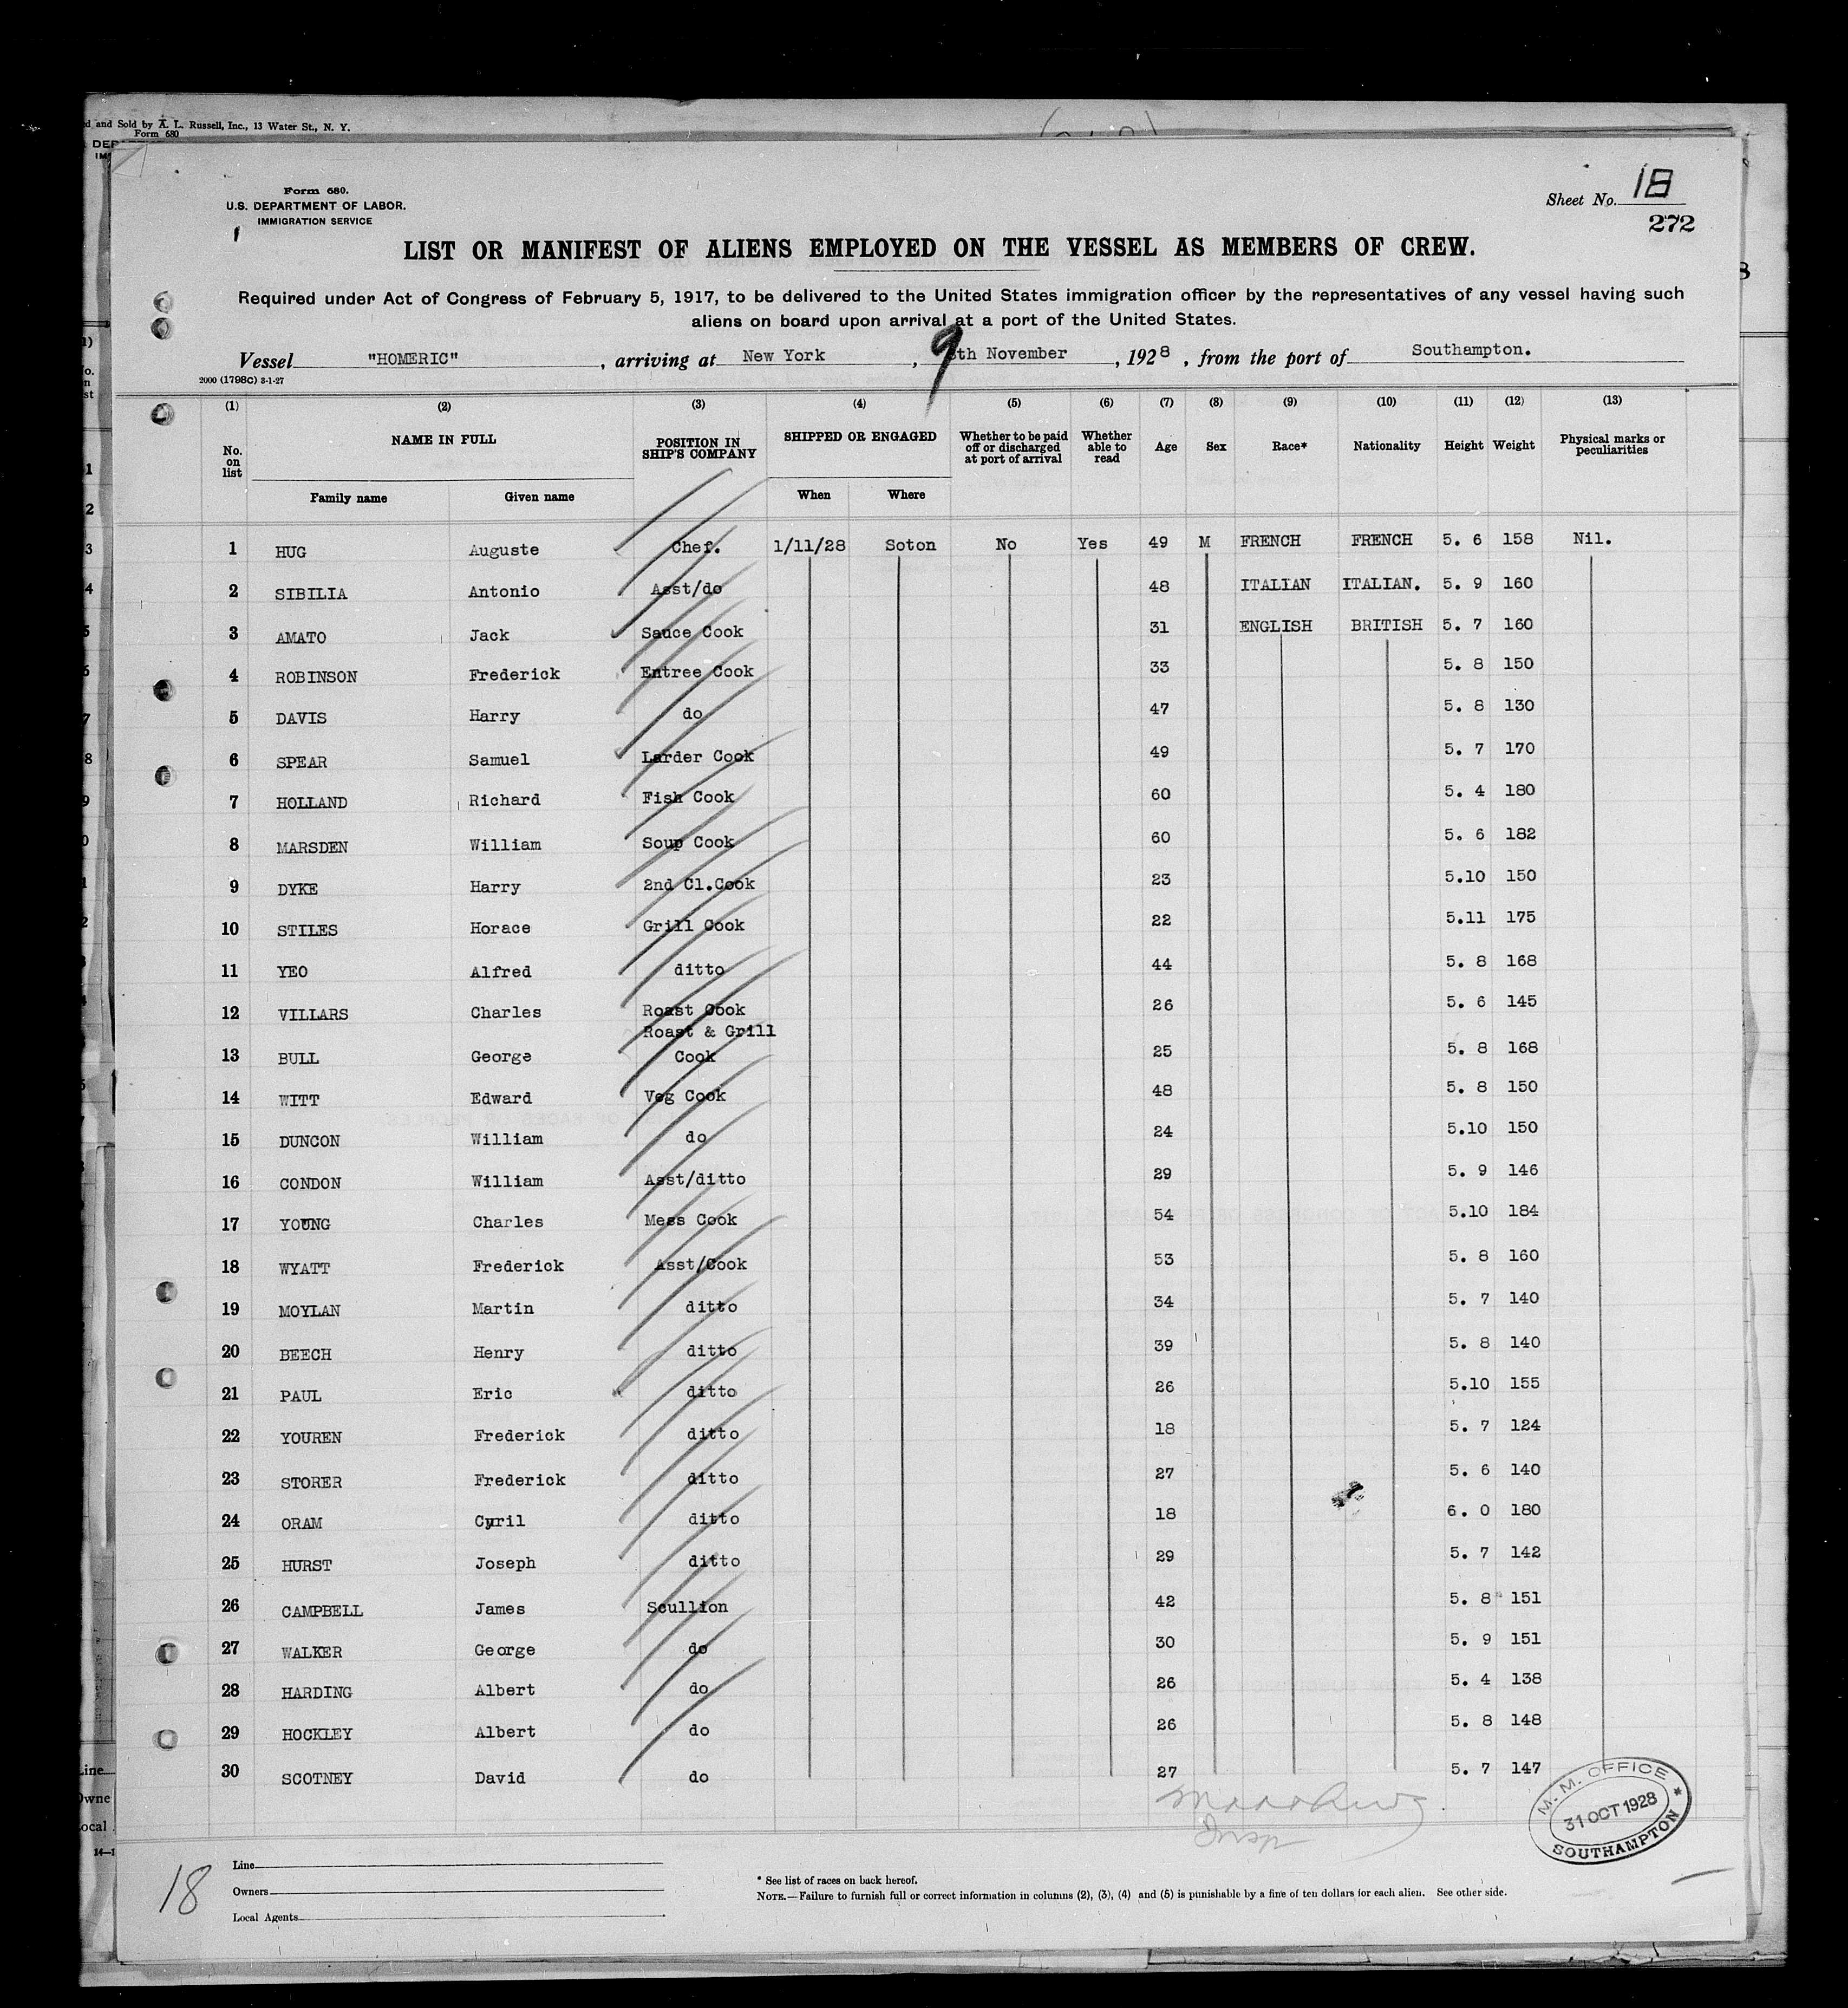 d and Sold by A. L. Russell, Inc., 13 Water St., N. Y.
Form 680
Form 680.
U.S. DEPARTMENT OF LABOR.
IMMIGRATION SERVICE
Sheet No. 18
272
LIST OR MANIFEST OF ALIENS EMPLOYED ON THE VESSEL AS MEMBERS OF CREW.
Required under Act of Congress of February 5, 1917, to be delivered to the United States immigration officer by the representatives of any vessel having such
aliens on board upon arrival at a port of the United States.
Vessel "HOMERIC", arriving at New York, 9th November, 1928, from the port of Southampton.
2000 (1798C) 3-1-27
(1) (2) (3) (4) (5) (6) (7) (8) (9) (10) (11) (12) (13)
No. on list NAME IN FULL POSITION IN SHIP'S COMPANY SHIPPED OR ENGAGED Whether to be paid off or discharged at port of arrival Whether able to read Age Sex Race* Nationality Height Weight Physical marks or peculiarities
Family name Given name When Where
1 HUG Auguste Chef. 1/11/28 Soton No Yes 49 M FRENCH FRENCH 5. 6 158 Nil.
2 SIBILIA Antonio Asst/do 48 ITALIAN ITALIAN. 5. 9 160
3 AMATO Jack Sauce Cook 31 ENGLISH BRITISH 5. 7 160
4 ROBINSON Frederick Entree Cook 33 5. 8 150
5 DAVIS Harry do 47 5. 8 130
6 SPEAR Samuel Larder Cook 49 5. 7 170
7 HOLLAND Richard Fish Cook 60 5. 4 180
8 MARSDEN William Soup Cook 60 5. 6 182
9 DYKE Harry 2nd Cl.Cook 23 5.10 150
10 STILES Horace Grill Cook 22 5.11 175
11 YEO Alfred ditto 44 5. 8 168
12 VILLARS Charles Roast Cook 26 5. 6 145
13 BULL George Roast & Grill Cook 25 5. 8 168
14 WITT Edward Veg Cook 48 5. 8 150
15 DUNCON William do 24 5.10 150
16 CONDON William Asst/ditto 29 5. 9 146
17 YOUNG Charles Mess Cook 54 5.10 184
18 WYATT Frederick Asst/Cook 53 5. 8 160
19 MOYLAN Martin ditto 34 5. 7 140
20 BEECH Henry ditto 39 5. 8 140
21 PAUL Eric ditto 26 5.10 155
22 YOUREN Frederick ditto 18 5. 7 124
23 STORER Frederick ditto 27 5. 6 140
24 ORAM Cyril ditto 18 6. 0 180
25 HURST Joseph ditto 29 5. 7 142
26 CAMPBELL James Scullion 42 5. 8 151
27 WALKER George do 30 5. 9 151
28 HARDING Albert do 26 5. 4 138
29 HOCKLEY Albert do 26 5. 8 148
30 SCOTNEY David do 27 5. 7 147
M. M. OFFICE
31 OCT 1928
SOUTHAMPTON
18
Line
Owners
Local Agents
* See list of races on back hereof.
NOTE.—Failure to furnish full or correct information in columns (2), (3), (4) and (5) is punishable by a fine of ten dollars for each alien. See other side.